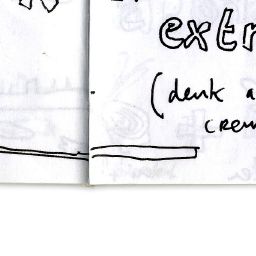 extr
(denk a
crem